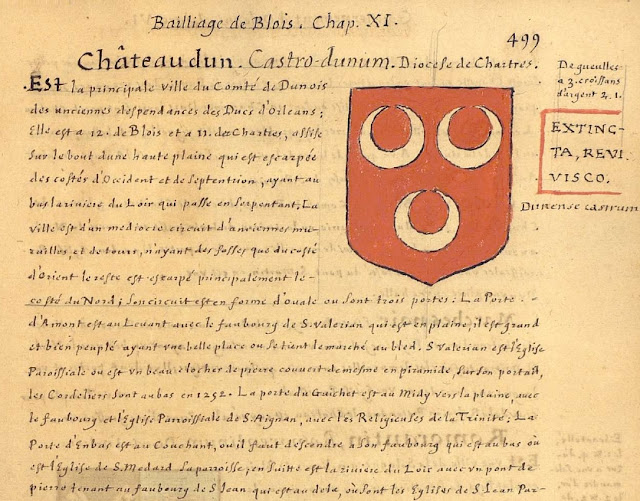 Bailliage de Blois. Chap. XI.
499
Châteaudun. Castro-dunum. Diocese de Chartres.
De gueulles
a 3. croissans
d'argent 2. 1.
EXTINC-
TA, REVI
VISCO.
Dunense castrum
Est la principale ville du Comté de Dunois
des anciennes despendances des Ducs d'Orleans;
Elle est a 12. de Blois et a 11. de Chartres, assise
sur le bout dune haute plaine qui est escarpée
des costés d'Occident et de Septentrion, ayant au
bas la riviere du Loir qui passe en serpentant, La
ville est d'un mediocre circuit d'anciennes mu-
railles, et de tours, n'ayant des fosses que du costé
d'Orient le reste est escarpé principalement le
costé du Nord; son circuit est en forme d'ouale ou sont trois portes: La Porte
d'Amont est au Leuant auec le faubourg de S. Valerian qui est en plaine, il est grand
et bien peuplé ayant vne belle place ou se tient le marché au bled. S Valerian est l'Eglise
Paroissiale ou est vn beau clocher de pierre couvert de mesme en piramide, sur son portail,
les Cordeliers sont au bas en 1252. La porte du Guichet est au Midy vers la plaine, avec
le faubourg et l'Eglise Parroissiale de S. Aignan, avec les Religieuses de la Trinité; La
Porte d'Enbas est au Couchant, ou il faut descendre a son faubourg qui est au bas où
est l'Eglise de S. Medard la paroisse; en suitte est la riviere du Loir avec vn pont de
pierre tenant au faubourg de S Jean qui est au dela, où sont les Eglises de S Jean Par-